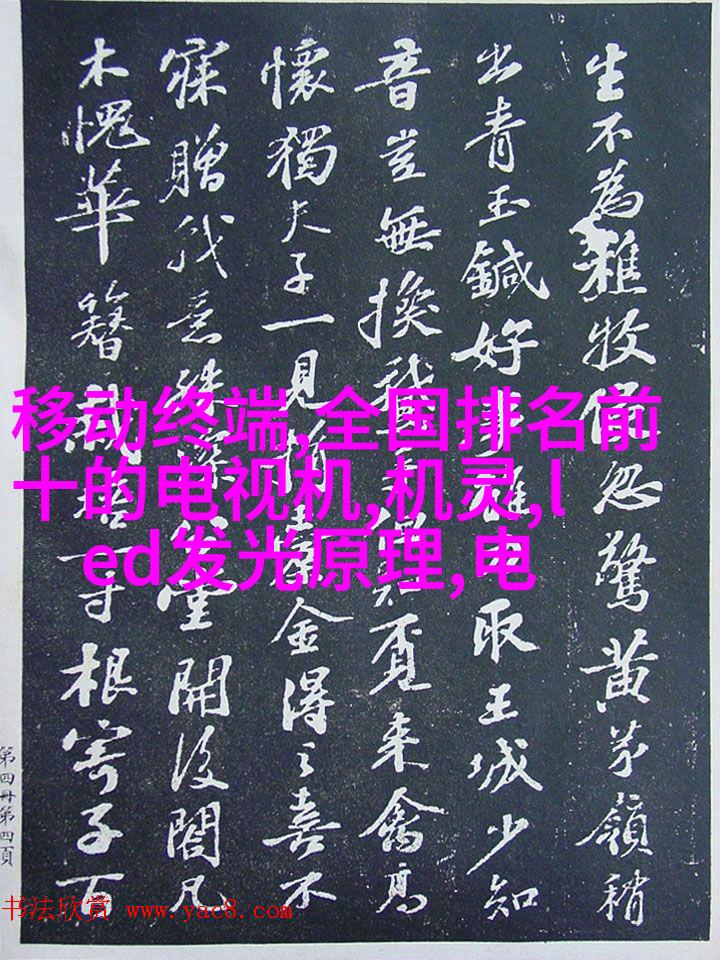 移动终端,全国排名前
十的电视机,机灵,l
ed发光原理,电
生不為雅牧忽驚黃茅嶺稍
出青玉鍼好取王城少知
音豈無換來禽高
懷獨夫子一見金得之喜不
寐贈我意殊堂開後閤凡
木愧華簪根寄子百
第四冊第四頁
书法欣赏 www.yac8.com